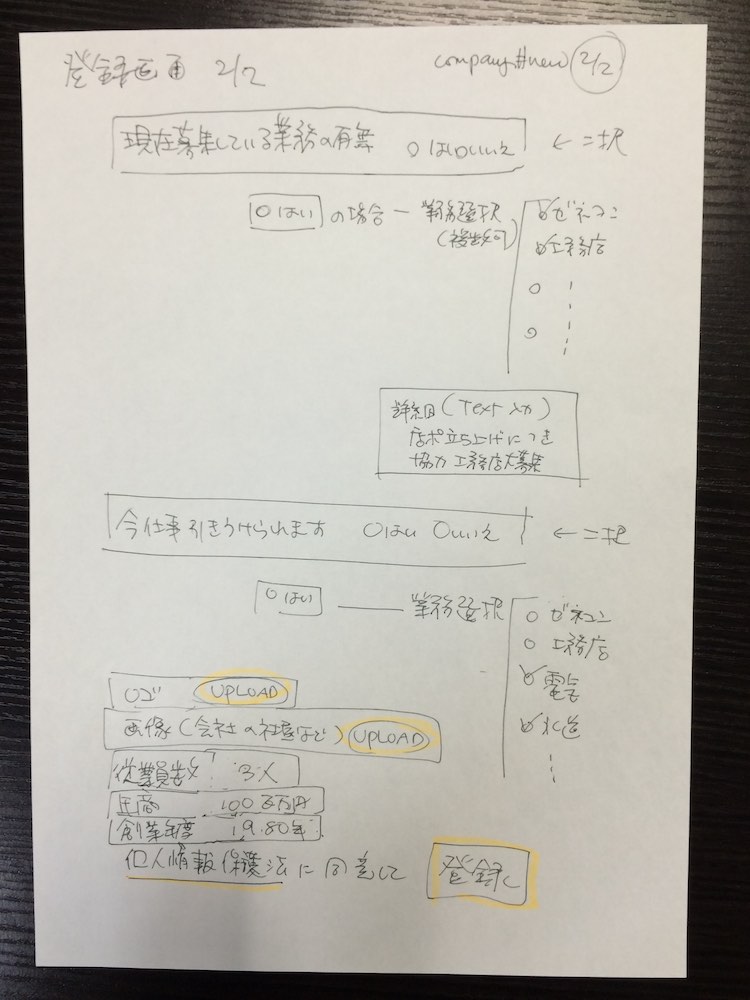 登録画面 2/2
company#new 2/2
現在募集している業務の有無 ○はい○いいえ ← 二択
○はい の場合 ー 業務選択
(複数可)
ゼネコン
工務店
詳細(Text入力)
店ポ立ち上げにつき
協力工務店大募集
今仕事引きうけられます ○はい ○いいえ ← 二択
○はい 業務選択
○ ゼネコン
○ 工務店
電気
水道
ロゴ UPLOAD
画像(会社の社屋など) UPLOAD
従業員数 3人
年商 100百万円
創業年度 19.80年
個人情報保護法に同意して 登録